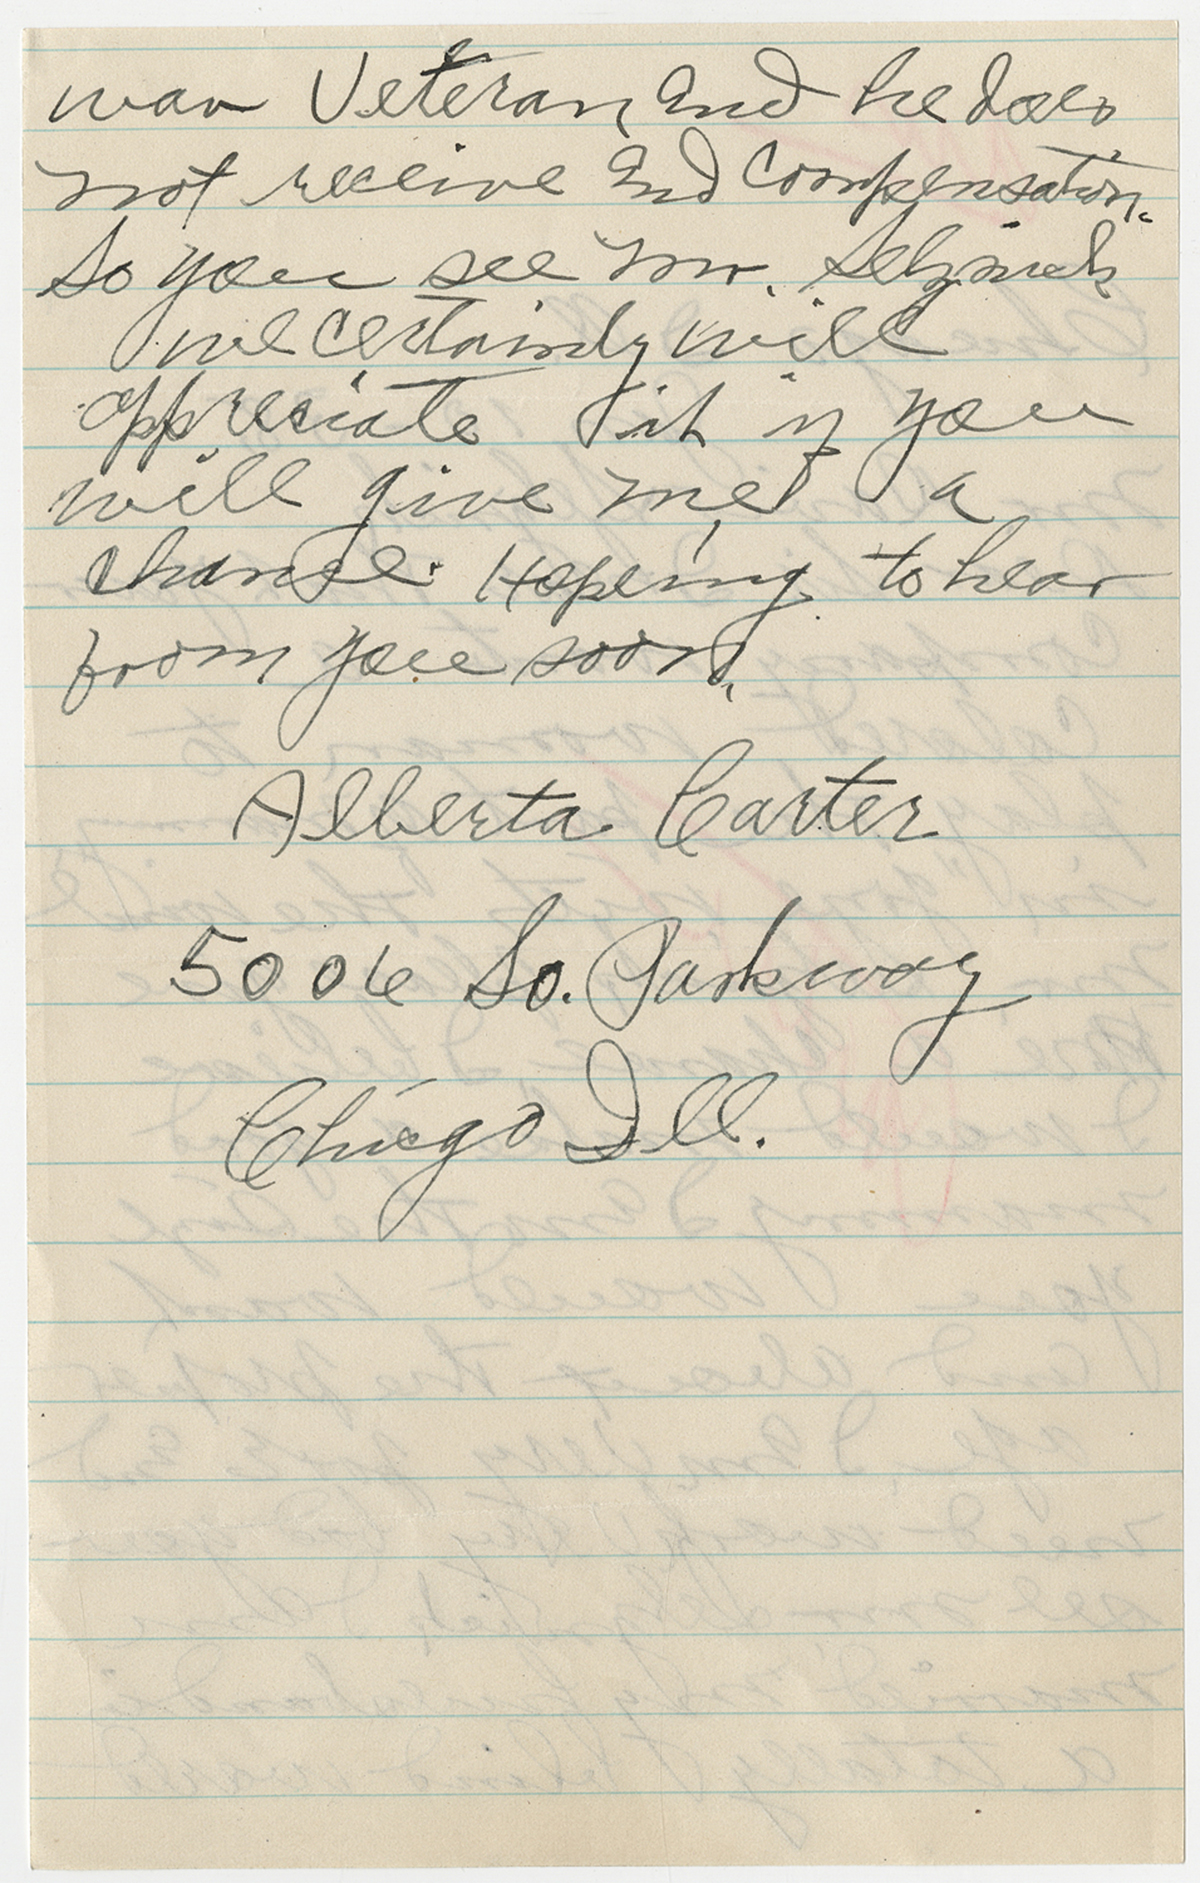 war Veteran, and he does
not receive and compensation.
So you see Mr. Selznick
we certainly will
appreciate it if you
will give me a
chance. Hopeing to hear
from you soon.
Alberta Carter
5006 So. Parkway
Chicgo Ill.